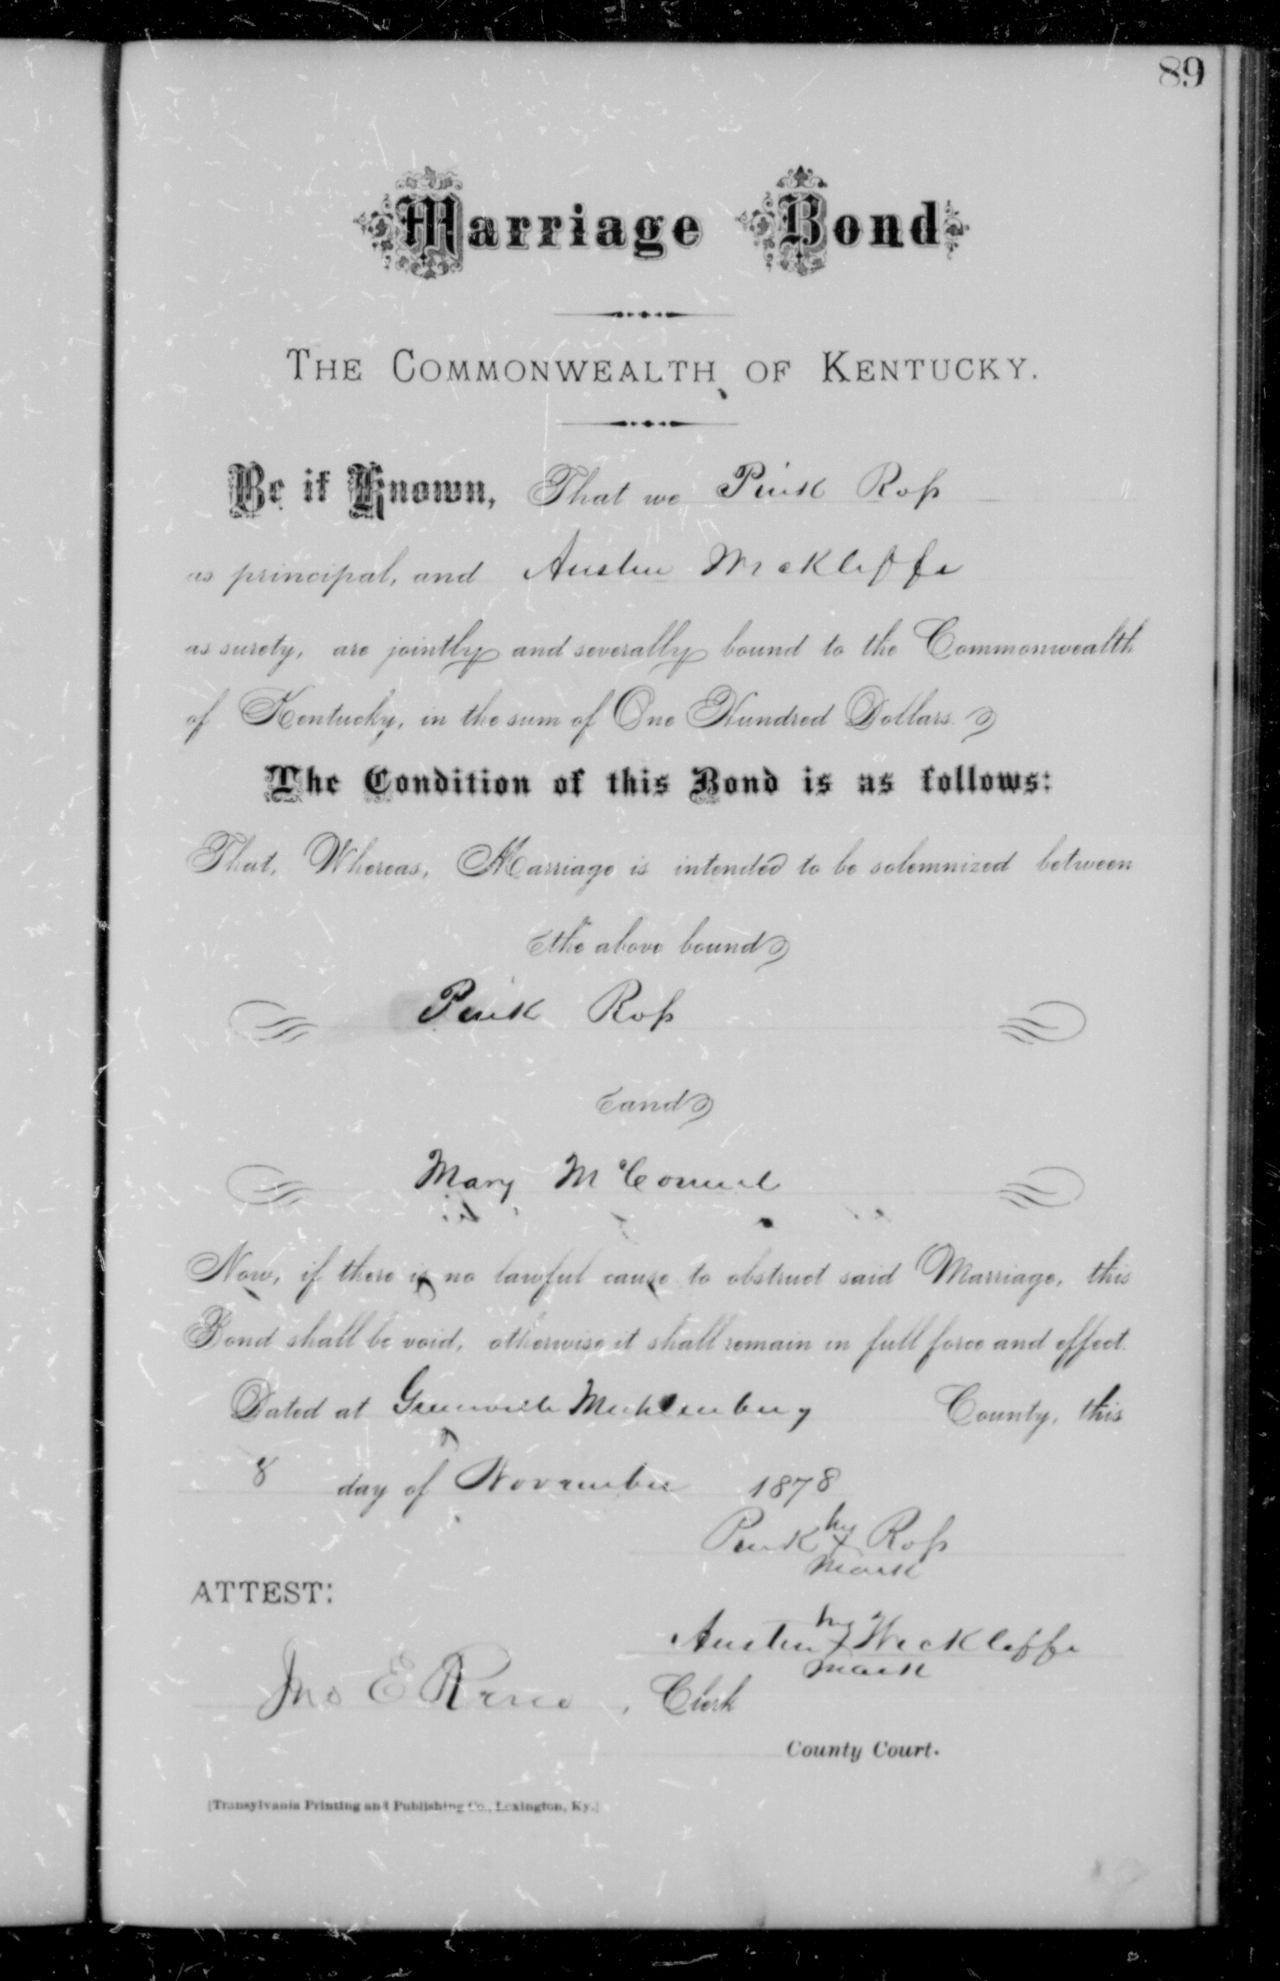 89
Marriage Bond
THE COMMONWEALTH OF KENTUCKY.
Be it Known, That we Pink Ross
as principal, and Austin Wickliffe
as surety, are jointly and severally bound to the Commonwealth
of Kentucky, in the sum of One Hundred Dollars.
The Condition of this Bond is as follows:
That, Whereas, Marriage is intended to be solemnized between
the above bound
Pink Ross
and
Mary McConnel
Now, if there is no lawful cause to obstruct said Marriage, this
Bond shall be void, otherwise it shall remain in full force and effect.
Dated at Greenville Muhlenburg County, this
8 day of November 1878
Pink his x mark Ross
ATTEST:
Austin his x mark Wickliffe
Jno E Reno, Clerk
County Court.
[Transylvania Printing and Publishing Co., Lexington, Ky.]